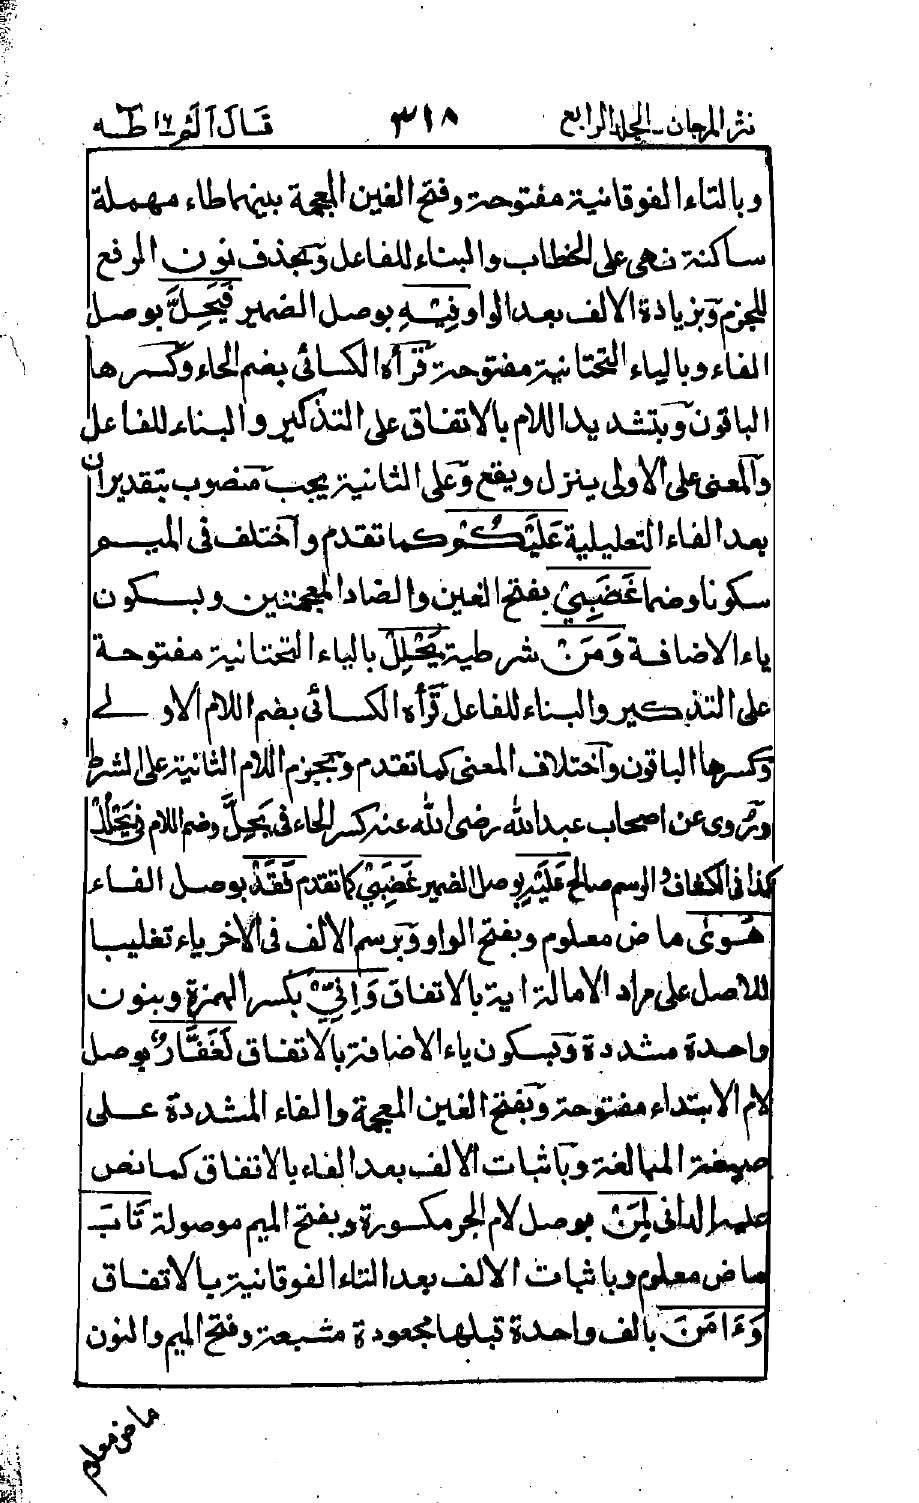 نثر المرجان ـ الجلد الرابع ٣١٨ قال الم ١٦ طه
وبالتاء الفوقانية مفتوحة وفتح الغين المعجمة بينهما طاء مهملة
ساكنة نهى على الخطاب والبناء للفاعل وبحذف نون الرفع
للجزم وبزيادة الالف بعد الواو فِيْهِ بوصل الضمير فَيَحِلَّ بوصل
الفاء وبالياء التحتانية مفتوحة قرأه الكسائى بضم الحاء وكسرها
الباقون وبتشديد اللام بالاتفاق على التذكير والبناء للفاعل
والمعنى على الاولى ينزل ويقع وعلى الثانية يجب منصوب بتقدير ان
بعد الفاء التعليلية عَلَيْكُمْ كما تقدم واختلف فى الميم
سكونا وضما غَضَبِيْ بفتح الغين والضاد المعجمتين وبسكون
ياء الاضافة وَمَنْ شرطية يَحْلِلْ بالياء التحتانية مفتوحة
على التذكير والبناء للفاعل قرأه الكسائى بضم اللام الاولے
وكسرها الباقون واختلاف المعنى كما تقدم وبجزم اللام الثانية على الشرط
ويروى عن اصحاب عبد الله رضى الله عنه كسر الحاء فى يَحِلَّ وضم اللام فى يَحْلُلْ
كذا فى الكشاف والرسم صالح عَلَيْهِ بوصل الضمير غَضَبِيْ كما تقدم فَقَدْ بوصل الفاء
هَوٰى ماض معلوم وبفتح الواو وبرسم الالف فى الآخر ياء تغليبا
للاصل على مراد الامالة اية بالاتفاق وَاِنِّيْ بكسر الهمزة وبنون
واحدة مشددة وبسكون ياء الاضافة بالاتفاق لَغَفَّارٌ بوصل
لام الابتداء مفتوحة وبفتح الغين المعجمة والفاء المشددة على
صيغة المبالغة وباثبات الالف بعد الفاء بالاتفاق كما نص
عليه الدانى لِمَنْ بوصل لام الجر مكسورة وبفتح الميم موصولة تَابَ
ماض معلوم وباثبات الالف بعد التاء الفوقانية بالاتفاق
وَءَامَنَ بالف واحدة قبلها مجعودة مشبعة وفتح الميم والنون
ماض معلوم